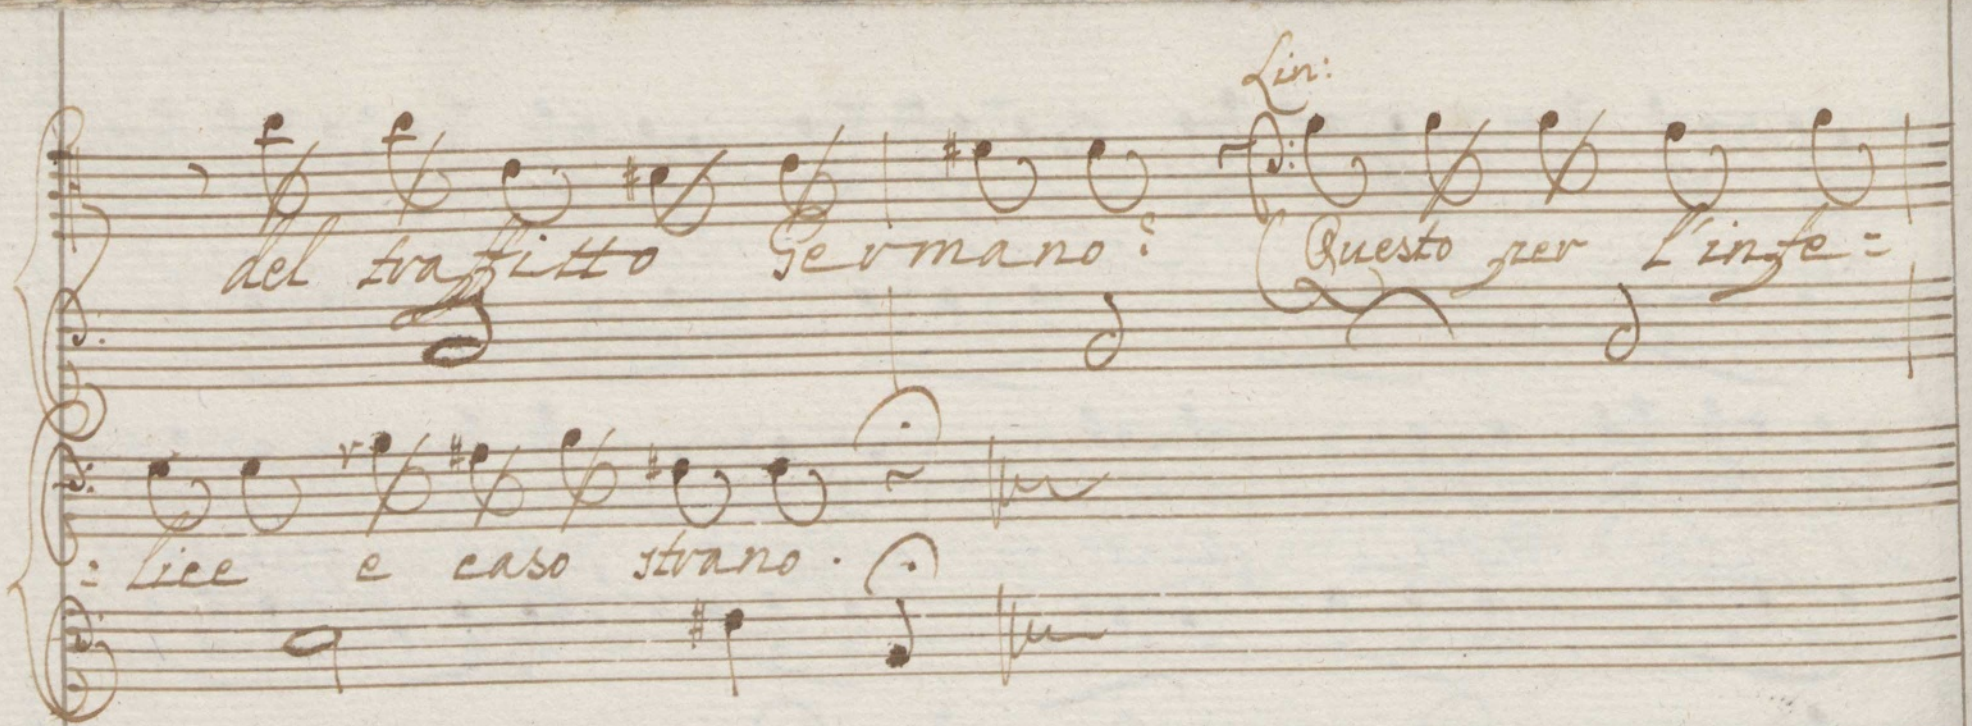 Lin:
del trafitto Germano? (Questo per l'infe=
=lice e caso strano.